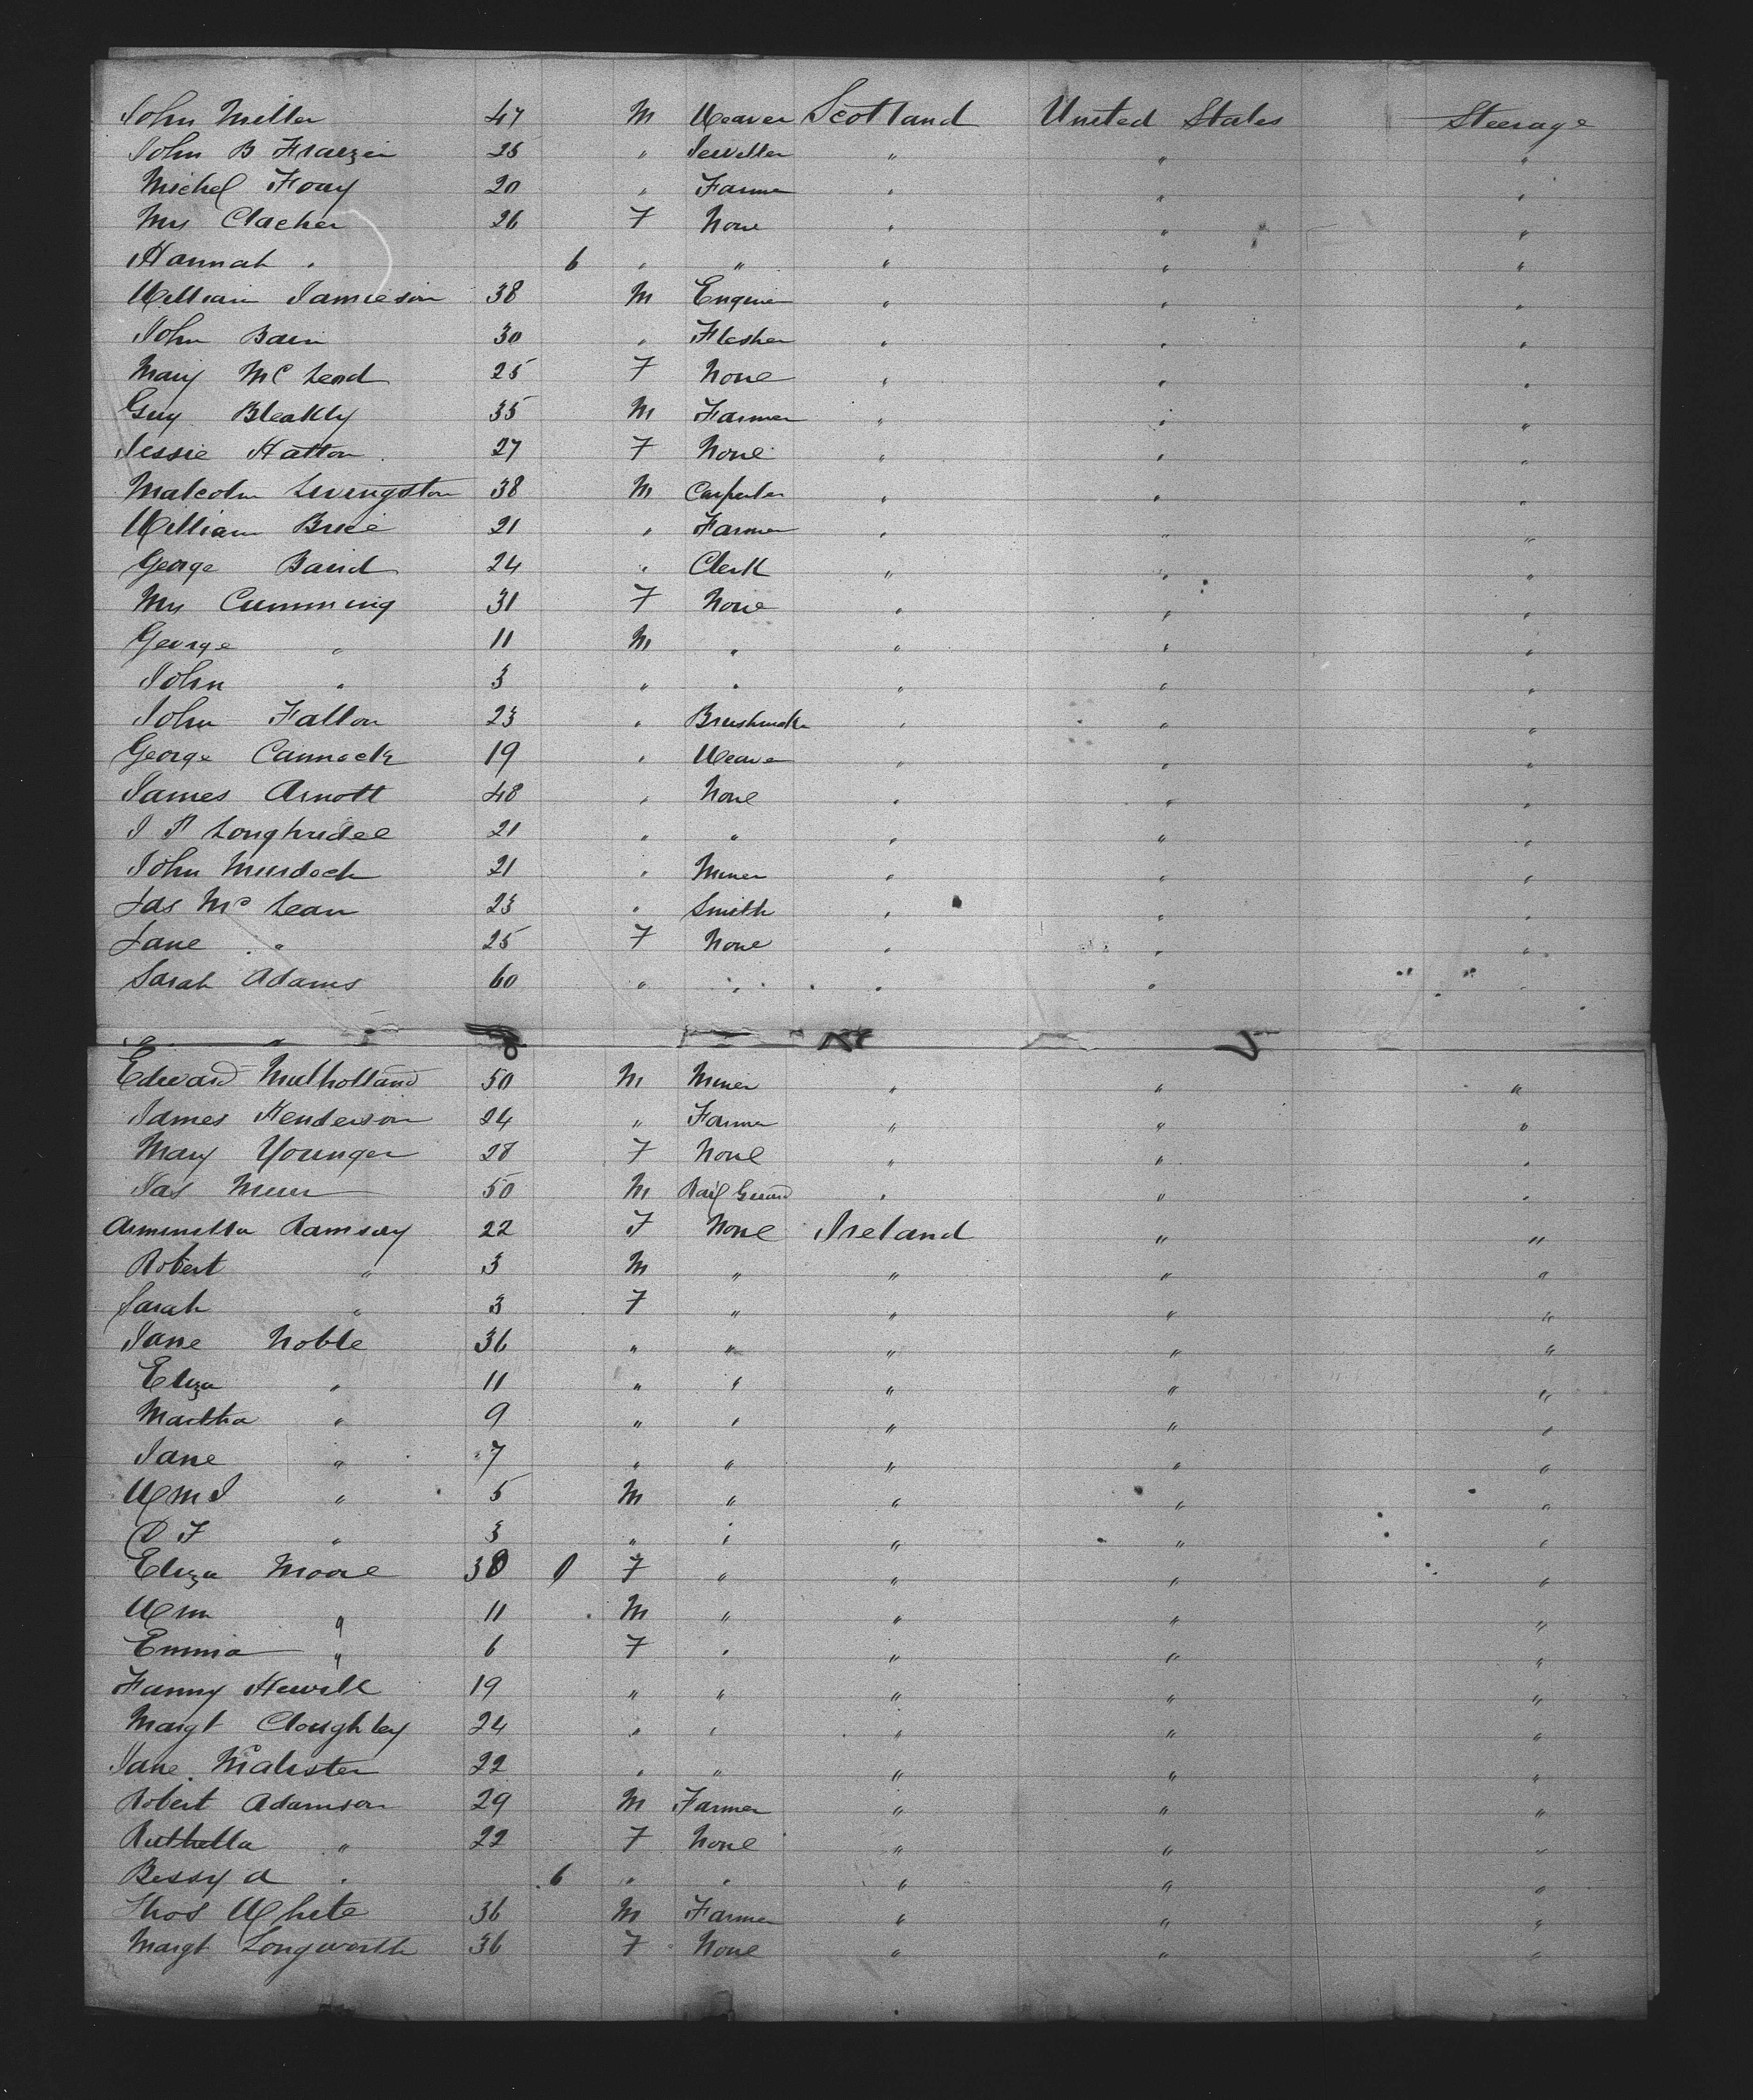 John Miller 47 M Weaver Scotland United States Steerage
John B Frazer 25 " Jeweller " " "
Michel Foay 20 " Farmer " " "
Mrs Clacher 26 F None " " "
Hannah " 6 " " " " "
William Jamieson 38 M Engineer " " "
John Bain 30 " Flesher " " "
Mary McLeod 25 F None " " "
Guy Bleakly 35 M Farmer " " "
Jessie Hatton 27 F None " " "
Malcolm Livingston 38 M Carpenter " " "
William Brice 21 " Farmer " " "
George Baird 24 " Clerk " " "
Mrs Cumming 31 F None " " "
George " 11 M " " " "
John " 3 " " " " "
John Fallon 23 " Brushmaker " " "
George Cannock 19 " Weaver " " "
James Arnott 48 " None " " "
21 " " " " "
John Murdoch 21 " Miner " " "
Jas McLean 23 " Smith " " "
Jane " 25 F None " " "
Sarah Adams 60 " " " " "
Edward Mulholland 50 M Miner " " "
James Henderson 24 " Farmer " " "
Mary Younger 28 F None " " "
Jas Muir 50 M Rail Guard " " "
Arminella Ramsay 22 F None Ireland " "
Robert " 3 M " " " "
Sarah " 3 F " " " "
Jane Noble 36 " " " " "
Eliza " 11 " " " " "
Martha " 9 " " " " "
Jane " 7 " " " " "
Wm J " 5 M " " " "
F " 3 " " " " "
Eliza Moore 30 F " " " "
Wm " 11 M " " " "
Emma " 6 F " " " "
Fanny 19 " " " " "
Margt Cloughley 24 " " " " "
Jane McAlister 22 " " " " "
Robert Adamson 29 M Farmer " " "
Ruthella " 22 F None " " "
Bessy A " 6 " " " " "
Thos White 36 M Farmer " " "
Margt Longworth 36 F None " " "